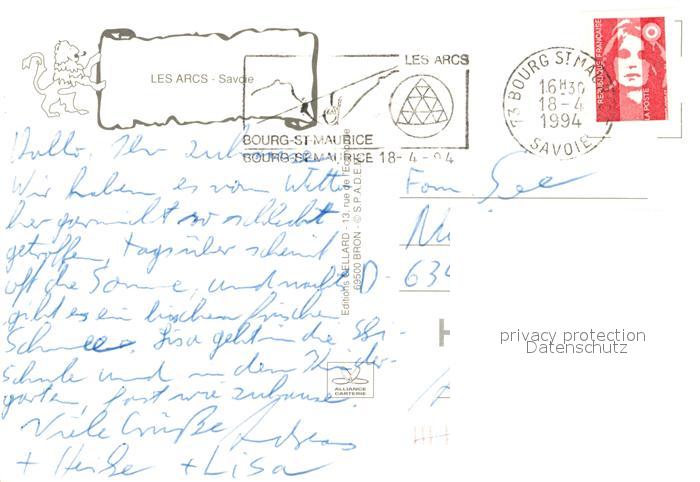 LES ARCS - Savoie
LES ARCS
BOURG-ST-MAURICE
BOURG-ST-MAURICE 18-4-94
73 BOURG ST MAURICE
16H30
18-4
1994
SAVOIE
RÉPUBLIQUE FRANÇAISE
LA POSTE
Hallo, Ihr zuhause
Wir haben es vom Wetter
her garnicht so schlecht
getroffen, tagsüber scheint
oft die Sonne, und nachts
gibt es ein bischen frischen
Schnee. Lisa geht in die Ski-
schule und in den Kinder-
garten, fast wie zuhause.
Viele Grüße Andreas
+ Heike + Lisa
Fam. See
D-634
Editions CELLARD - 13, rue de l'Economie
69500 BRON - © S.P.A.D.E.M.
ALLIANCE
CARTERIE
privacy protection
Datenschutz